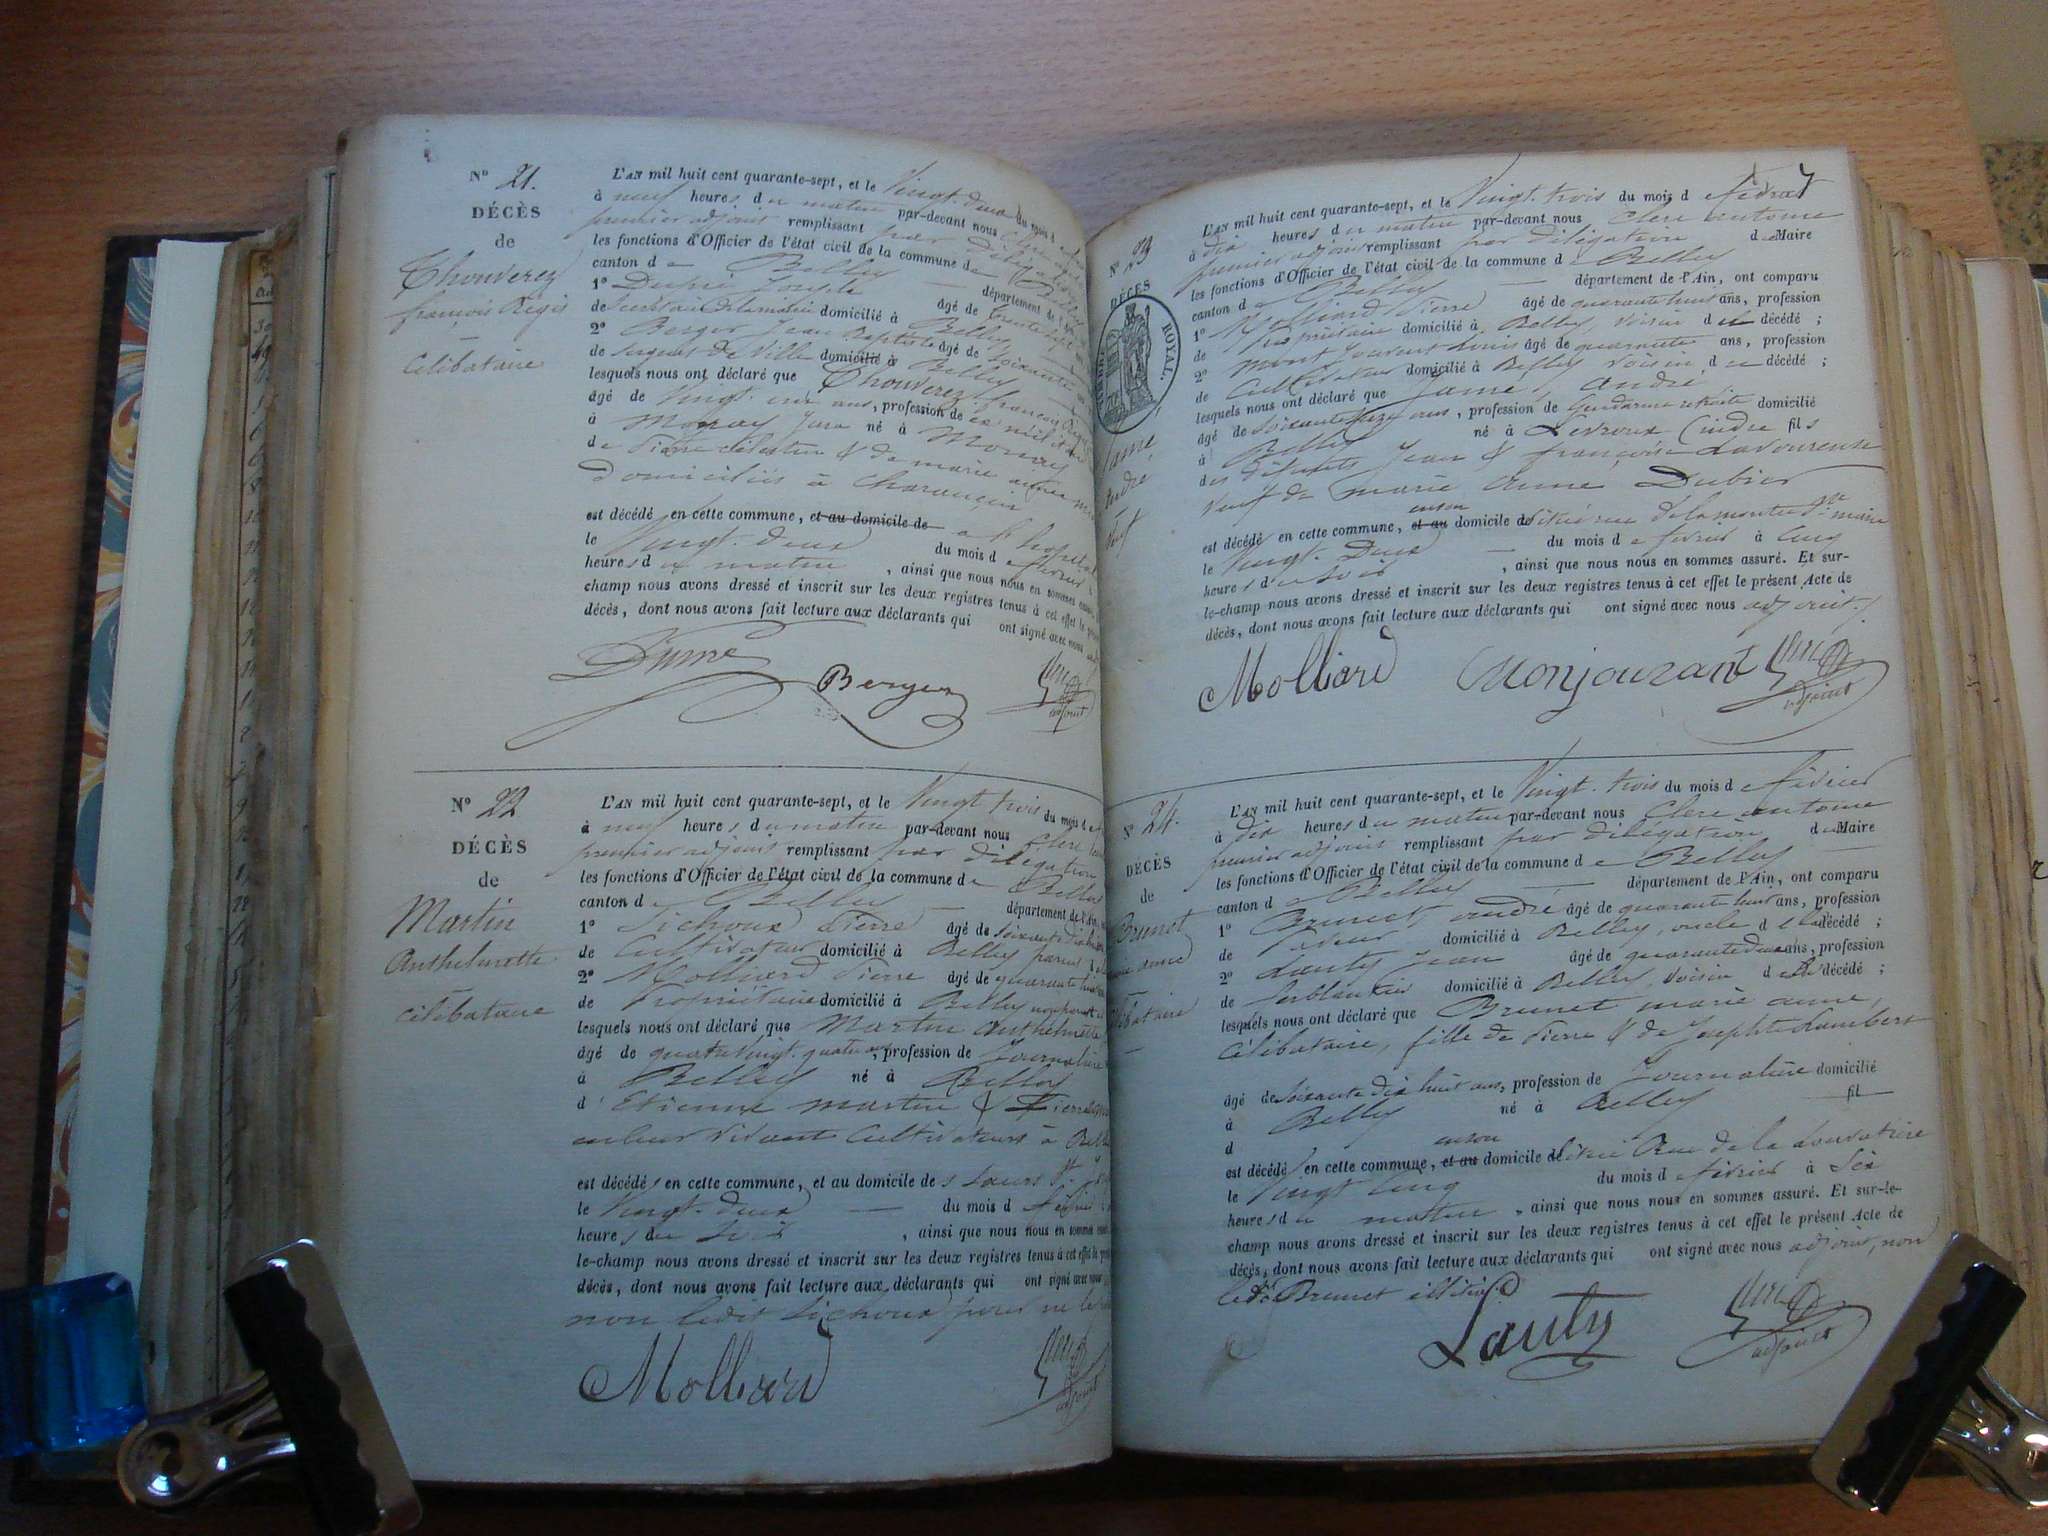 N° 21.
DÉCÈS
de
Thouverez
françois Régis
Célibataire
L'AN mil huit cent quarante-sept, et le Vingt-deux du mois d
à neuf heures du matin par-devant nous Clerc
premier adjoint remplissant par Délégation
les fonctions d'Officier de l'état civil de la commune de Belley
canton de Belley département de l'
1° Joseph âgé de trente sept
de Secrétaire de la mairie domicilié à Belley
2° Berger Jean Baptiste âgé de Soixante
de Sergent de Ville domicilié à Belley
lesquels nous ont déclaré que Thouverez françois Régis
âgé de Vingt-un ans, profession de ex militaire
à Jura né à
de Pierre Célestin & de marie
Domiciliés à
est décédé en cette commune, et au domicile de a l'hopital
le Vingt-Deux du mois de février
heures du matin, ainsi que nous nous en sommes
champ nous avons dressé et inscrit sur les deux registres tenus à cet effet le
décès, dont nous avons fait lecture aux déclarants qui ont signé avec nous
Berger
adjoint
N° 22
DÉCÈS
de
Martin
Anthelmette
célibataire
L'AN mil huit cent quarante-sept, et le Vingt trois du mois de
à neuf heures du matin par-devant nous Clerc
premier adjoint remplissant par délégation
les fonctions d'Officier de l'état civil de la commune de Belley
canton de Belley département de l'Ain
1° Sichoux Pierre âgé de Soixante dix
de Cultivateur domicilié à Belley parent
2° Molliard Pierre âgé de quarante huit
de Propriétaire domicilié à Belley
lesquels nous ont déclaré que Martin Anthelmette
âgé de quatre vingt-quatre ans, profession de Journalière
à Belley né à Belley
d' Etienne martin &
vivant Cultivateurs à
est décédé en cette commune, et au domicile des Sœurs St.
le Vingt-deux du mois de février
heures du soir, ainsi que nous nous en sommes
le-champ nous avons dressé et inscrit sur les deux registres tenus à cet effet le
décès, dont nous avons fait lecture aux déclarants qui ont signé avec nous
non ledit Sichoux pour ne le
Molliard
adjoint
N° 23
DÉCÈS
TIMBRE ROYAL.
Jamé,
André
Veuf
L'AN mil huit cent quarante-sept, et le Vingt-trois du mois de février
à dix heures du matin par-devant nous Clerc antoine
premier adjoint remplissant par délégation du Maire
les fonctions d'Officier de l'état civil de la commune de Belley
canton de Belley département de l'Ain, ont comparu
1° Molliard Pierre âgé de quarante huit ans, profession
de propriétaire domicilié à Belley, Voisin du décédé ;
2° Louis âgé de quarante ans, profession
de Cultivateur domicilié à Belley Voisin du décédé ;
lesquels nous ont déclaré que Jamé, André
âgé de Soixante seize ans, profession de Gendarme retraité domicilié
à Belley né à Levroux (indre fils
des défunts Jean & françoise Lavoureuse
Veuf de marie anne Dubier
est décédé en cette commune, et au en son domicile de situé rue de la montée Ste marie
le Vingt-Deux du mois de février à Cinq
heures du Soir, ainsi que nous nous en sommes assuré. Et sur-
le-champ nous avons dressé et inscrit sur les deux registres tenus à cet effet le présent Acte de
décès, dont nous avons fait lecture aux déclarants qui ont signé avec nous adjoint./
Molliard Monjouvant
adjoint
N° 24.
DÉCÈS
de
Brunet
marie anne
célibataire
L'AN mil huit cent quarante-sept, et le Vingt-trois du mois de février
à dix heures du matin par-devant nous Clerc antoine
premier adjoint remplissant par délégation du Maire
les fonctions d'Officier de l'état civil de la commune de Belley
canton de Belley département de l'Ain, ont comparu
1° Brunet, andré âgé de quarante huit ans, profession
de domicilié à Belley, oncle de la décédé ;
2° Lauty Jean âgé de quarante deux ans, profession
de ferblantier domicilié à Belley, Voisin de la décédé ;
lesquels nous ont déclaré que Brunet marie anne,
Célibataire, fille de Pierre & de Josephte Lambert
âgé de Soixante dix huit ans, profession de Journalière domicilié
à Belley né à Belley fil
d
est décédé en cette commune, et au en son domicile de situé Rue de la
le Vingt Cinq du mois de février à Six
heures du matin, ainsi que nous nous en sommes assuré. Et sur-le-
champ nous avons dressé et inscrit sur les deux registres tenus à cet effet le présent Acte de
décès, dont nous avons fait lecture aux déclarants qui ont signé avec nous adjoint, non
ledit Brunet illitéré
Lauty
adjoint